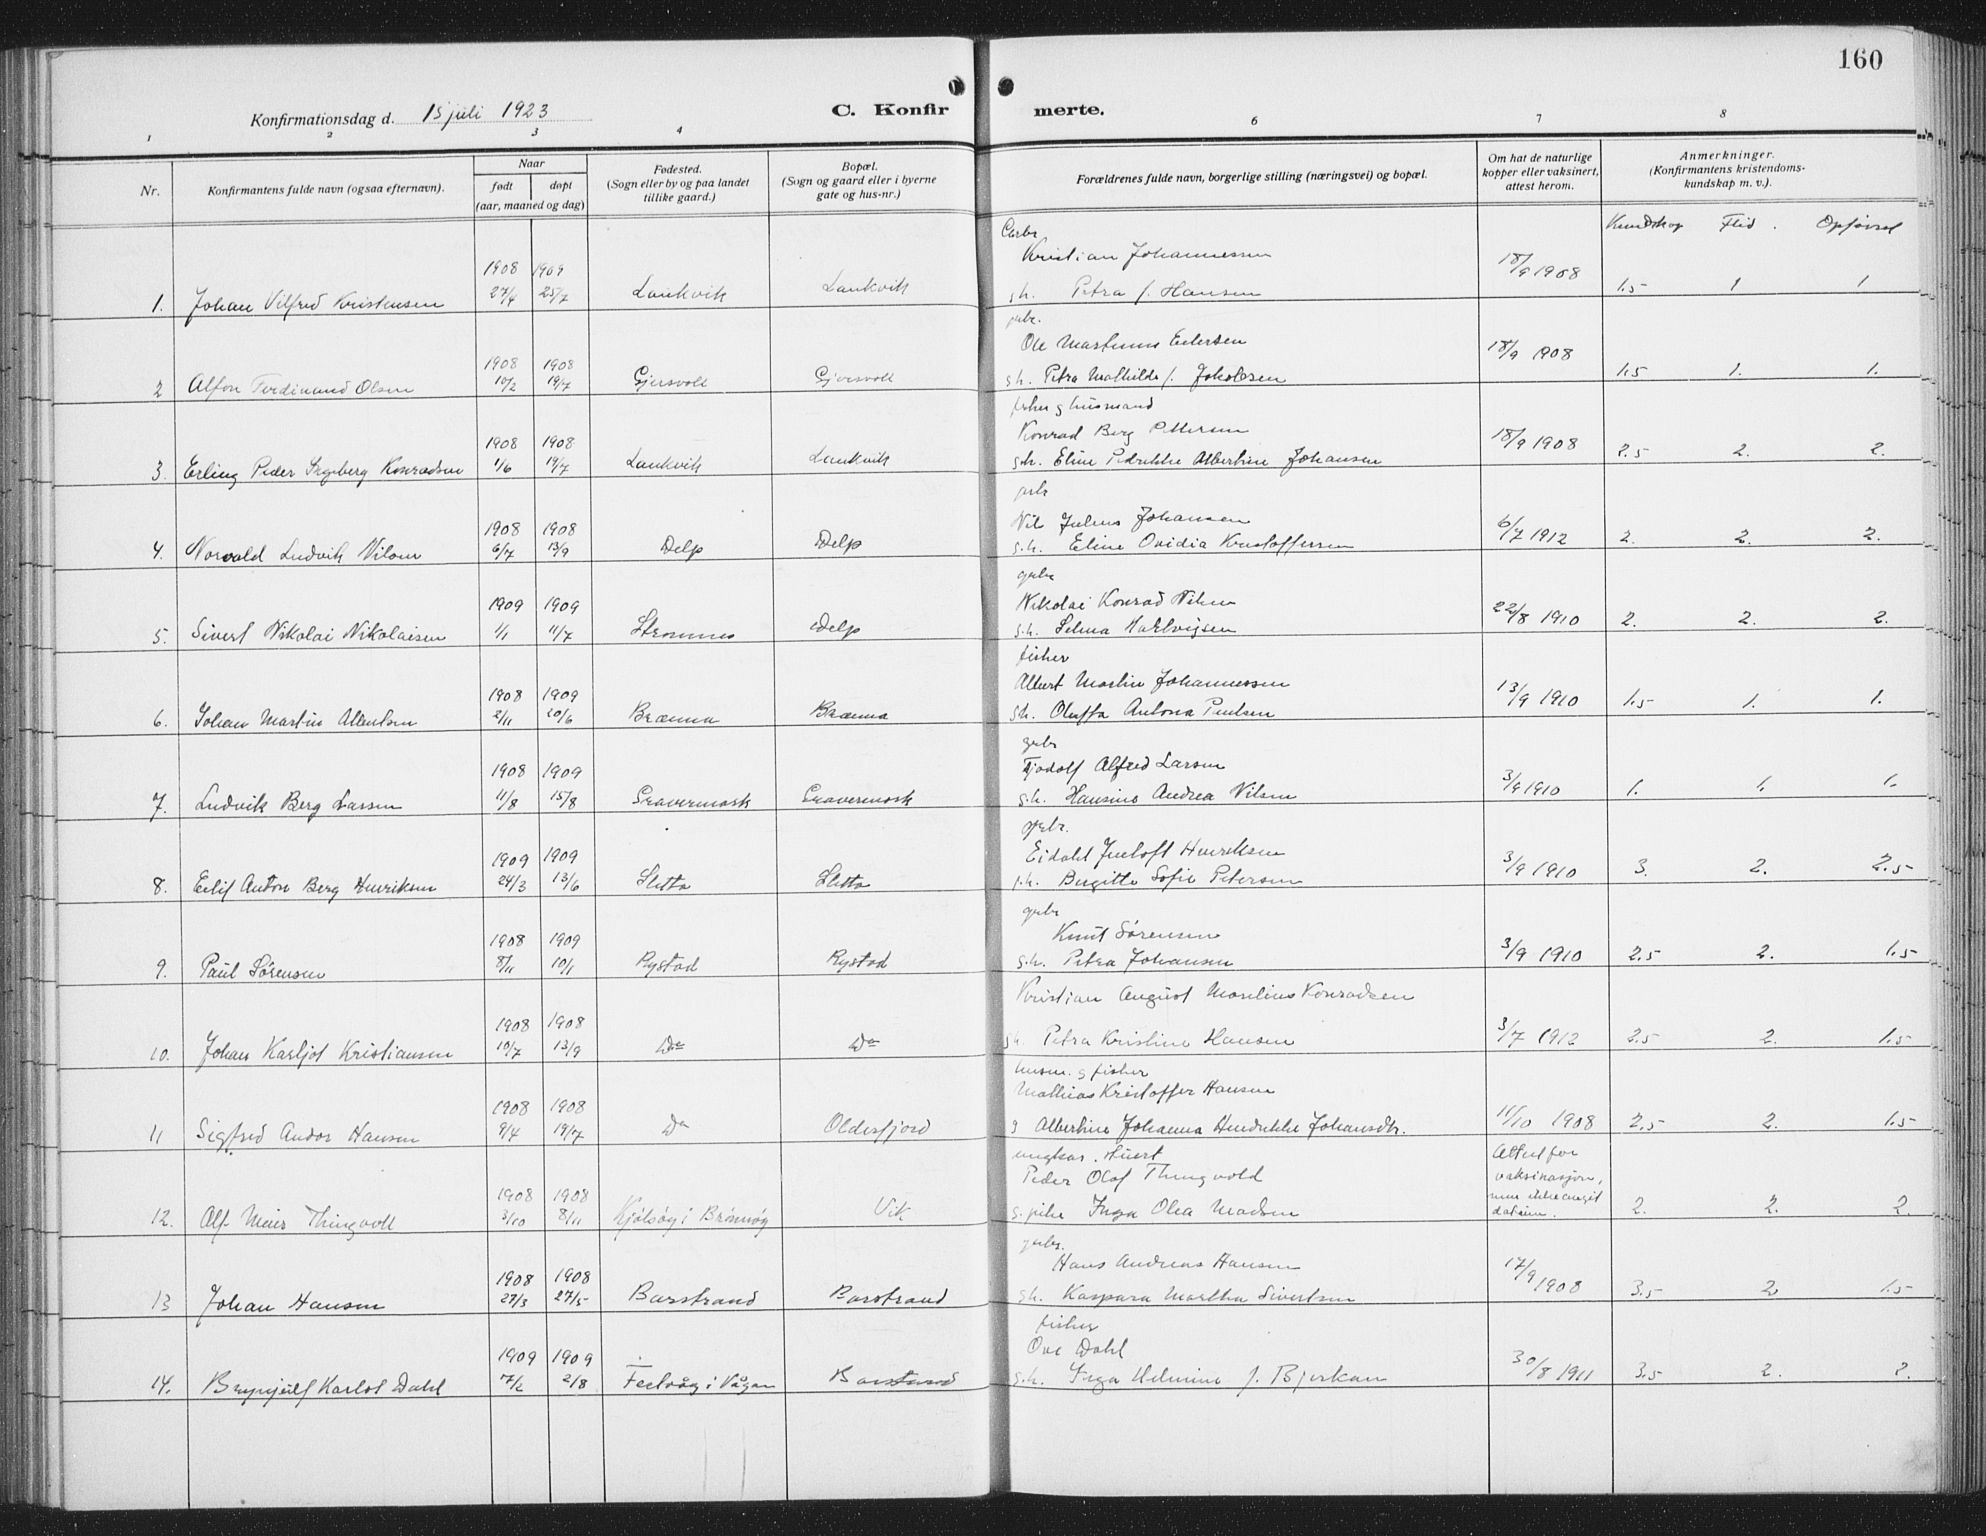 160
Konfirmationsdag d. 15 juli 1923
C. Konfirmerte.
1 2 3 4 6 7 8
Nr.
Konfirmantens fulde navn (ogsaa efternavn).
Naar
født døpt
(aar, maaned og dag)
Fødested.
(Sogn eller by og paa landet
tillike gaard.)
Bopæl.
(Sogn og gaard eller i byerne
gate og hus-nr.)
Forældrenes fulde navn, borgerlige stilling (næringsvei) og bopæl.
Om hat de naturlige
kopper eller vaksinert,
attest herom.
Anmerkninger.
(Konfirmantens kristendoms-
kundskap m. v.).
Kundskap Flid. Opførsel
Kristian Johannessen
1908 1909
18/9 1908
1. Johan Vilfred Kristensen 27/4 25/7 Laukvik Laukvik
gh. Petra f. Hansen 1.5 1 1
gbr.
Ole Martinus Eilersen
1908 1908
18/9 1908
2 Alfon Ferdinand Olsen 10/2 19/7 Gjersvoll Gjersvoll
gh. Petra Mathilde f. Jakobsen 1.5 1. 1.
fisher g husmand
Konrad Berg Pettersen
1908 1908
18/9 1908
3. Erling Peder Ingeberg Konradsen 1/6 19/7 Laukvik Laukvik
g.h. Eline Pedrikke Albertine Johansen 2.5 2. 2.
gbr
Nil Julius Johansen
1908 1908
4. Norvald Ludvik Nilsen 6/7 13/9 Delp Delp
g.h. Eline Ovidia Kristoffersen 6/7 1912 2. 2. 2.
gbr
Nikolai Konrad Nilsen
1909 1909
5. Sivert Nikolai Nikolaisen 1/1 11/7 Strømnes Delp
g.h. Selma Hartvigsen 22/8 1910 2. 2. 2.
fisher
Albert Martin Johannessen
1908 1909
6. Johan Martin Albertsen 2/11 20/6 Brænna Brænna
gh. Oluffa Antona Paulsen 13/9 1910 1.5 1. 1.
gbr
Tjodolf Alfred Larsen
1908 1909
7. Ludvik Berg Larsen 11/8 15/8 Gravermark Gravermark
g.h. Hansine Andrea Nilsen 3/9 1910 1. 1. 1.
gbr.
Eidahl Jueloft Henriksen
1909 1909
8. Eilif Anton Berg Henriksen 24/3 13/6 Sletta Sletta
g.h. Birgitte Sofie Petersen 3/9 1910 3. 2. 2.5
gbr
Knut Sørensen
1908 1909
9. Paul Sørensen 8/11 10/1 Rystad Rystad
g.h. Petra Johansen 3/9 1910 2.5 2. 1.5
Kristian August Marelius Konradsen
1908 1908
10. Johan Karljot Kristiansen 10/7 13/9 Do Do
gh. Petra Kristine Hansen 3/7 1912 2.5 2. 1.5
husm. g fisher
Mathias Kristoffer Hansen
1908 1908
11 Sigfred Andor Hansen 9/4 19/7 Do Oldersfjord
g Albertine Johanna Hendrikke Johansdtr. 11/10 1908 2.5 2. 1.5
ungkar.
Peder Olaf Thingvold
Attest for
vaksinasjon,
men ikke angit
datum.
1908 1908
12. Alf Meier Thingvoll 3/10 8/11 Kjølsøy i Brønnøy Vik
g. pike Inga Olea Madsen 2. 2. 2.
gbr.
Hans Andreas Hansen
1908 1908
13 Johan Hansen 27/3 27/5 Barstrand Barstrand
gh. Kaspara Martha Sivertsen 17/9 1908 3.5 2 1.5
fisher
Ove Dahl
1909 1909
14. Brynjulf Karlot Dahl 7/2 2/8 Festvåg i Vågan Barstrand
g.h. Inga Helmine f. Bjerkan 30/8 1911 3.5 2. 2.